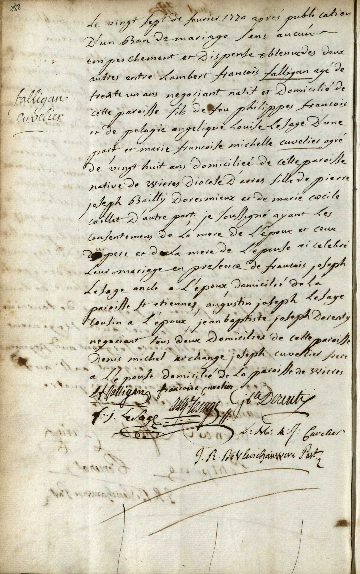 falligan
Cuvelier
Le vingt sept de fevrier 1770 apres publication
D'un Ban de mariage sans aucun
empechement et Dispense obtenue des deux
autres entre Lambert francois falligan agé de
trente un ans negociant natif et domicilié de
cette paroisse fils de feu philippes francois
et de pelagie angelique Louise Le Sage D'une
part et marie francoise michelle cuvelier agée
de vingt huit ans domiciliée de cette paroisse
native de diocese D'arras fille de pierre
joseph Bailly Doresmieux et de marie cecile
caillet D'autre part, je soussigné ayant les
consentemens de la mere de L'epoux et ceux
Du pere et de la mere de L'epouse ai celebré
Leur mariage en presence de francois joseph
Le Sage oncle a L'epoux domicilié de la
paroisse St etienne, augustin joseph Le Sage
Cousin a L'epoux, jean baptiste joseph
negociant tous deux domiciliés de cette paroisse
Denis michel archange joseph cuvellier frere
a L'epouse domicilié de la paroisse de
falligan francoise cuvelier
f. j. Lesage
D. M. A. J. Cuvelier